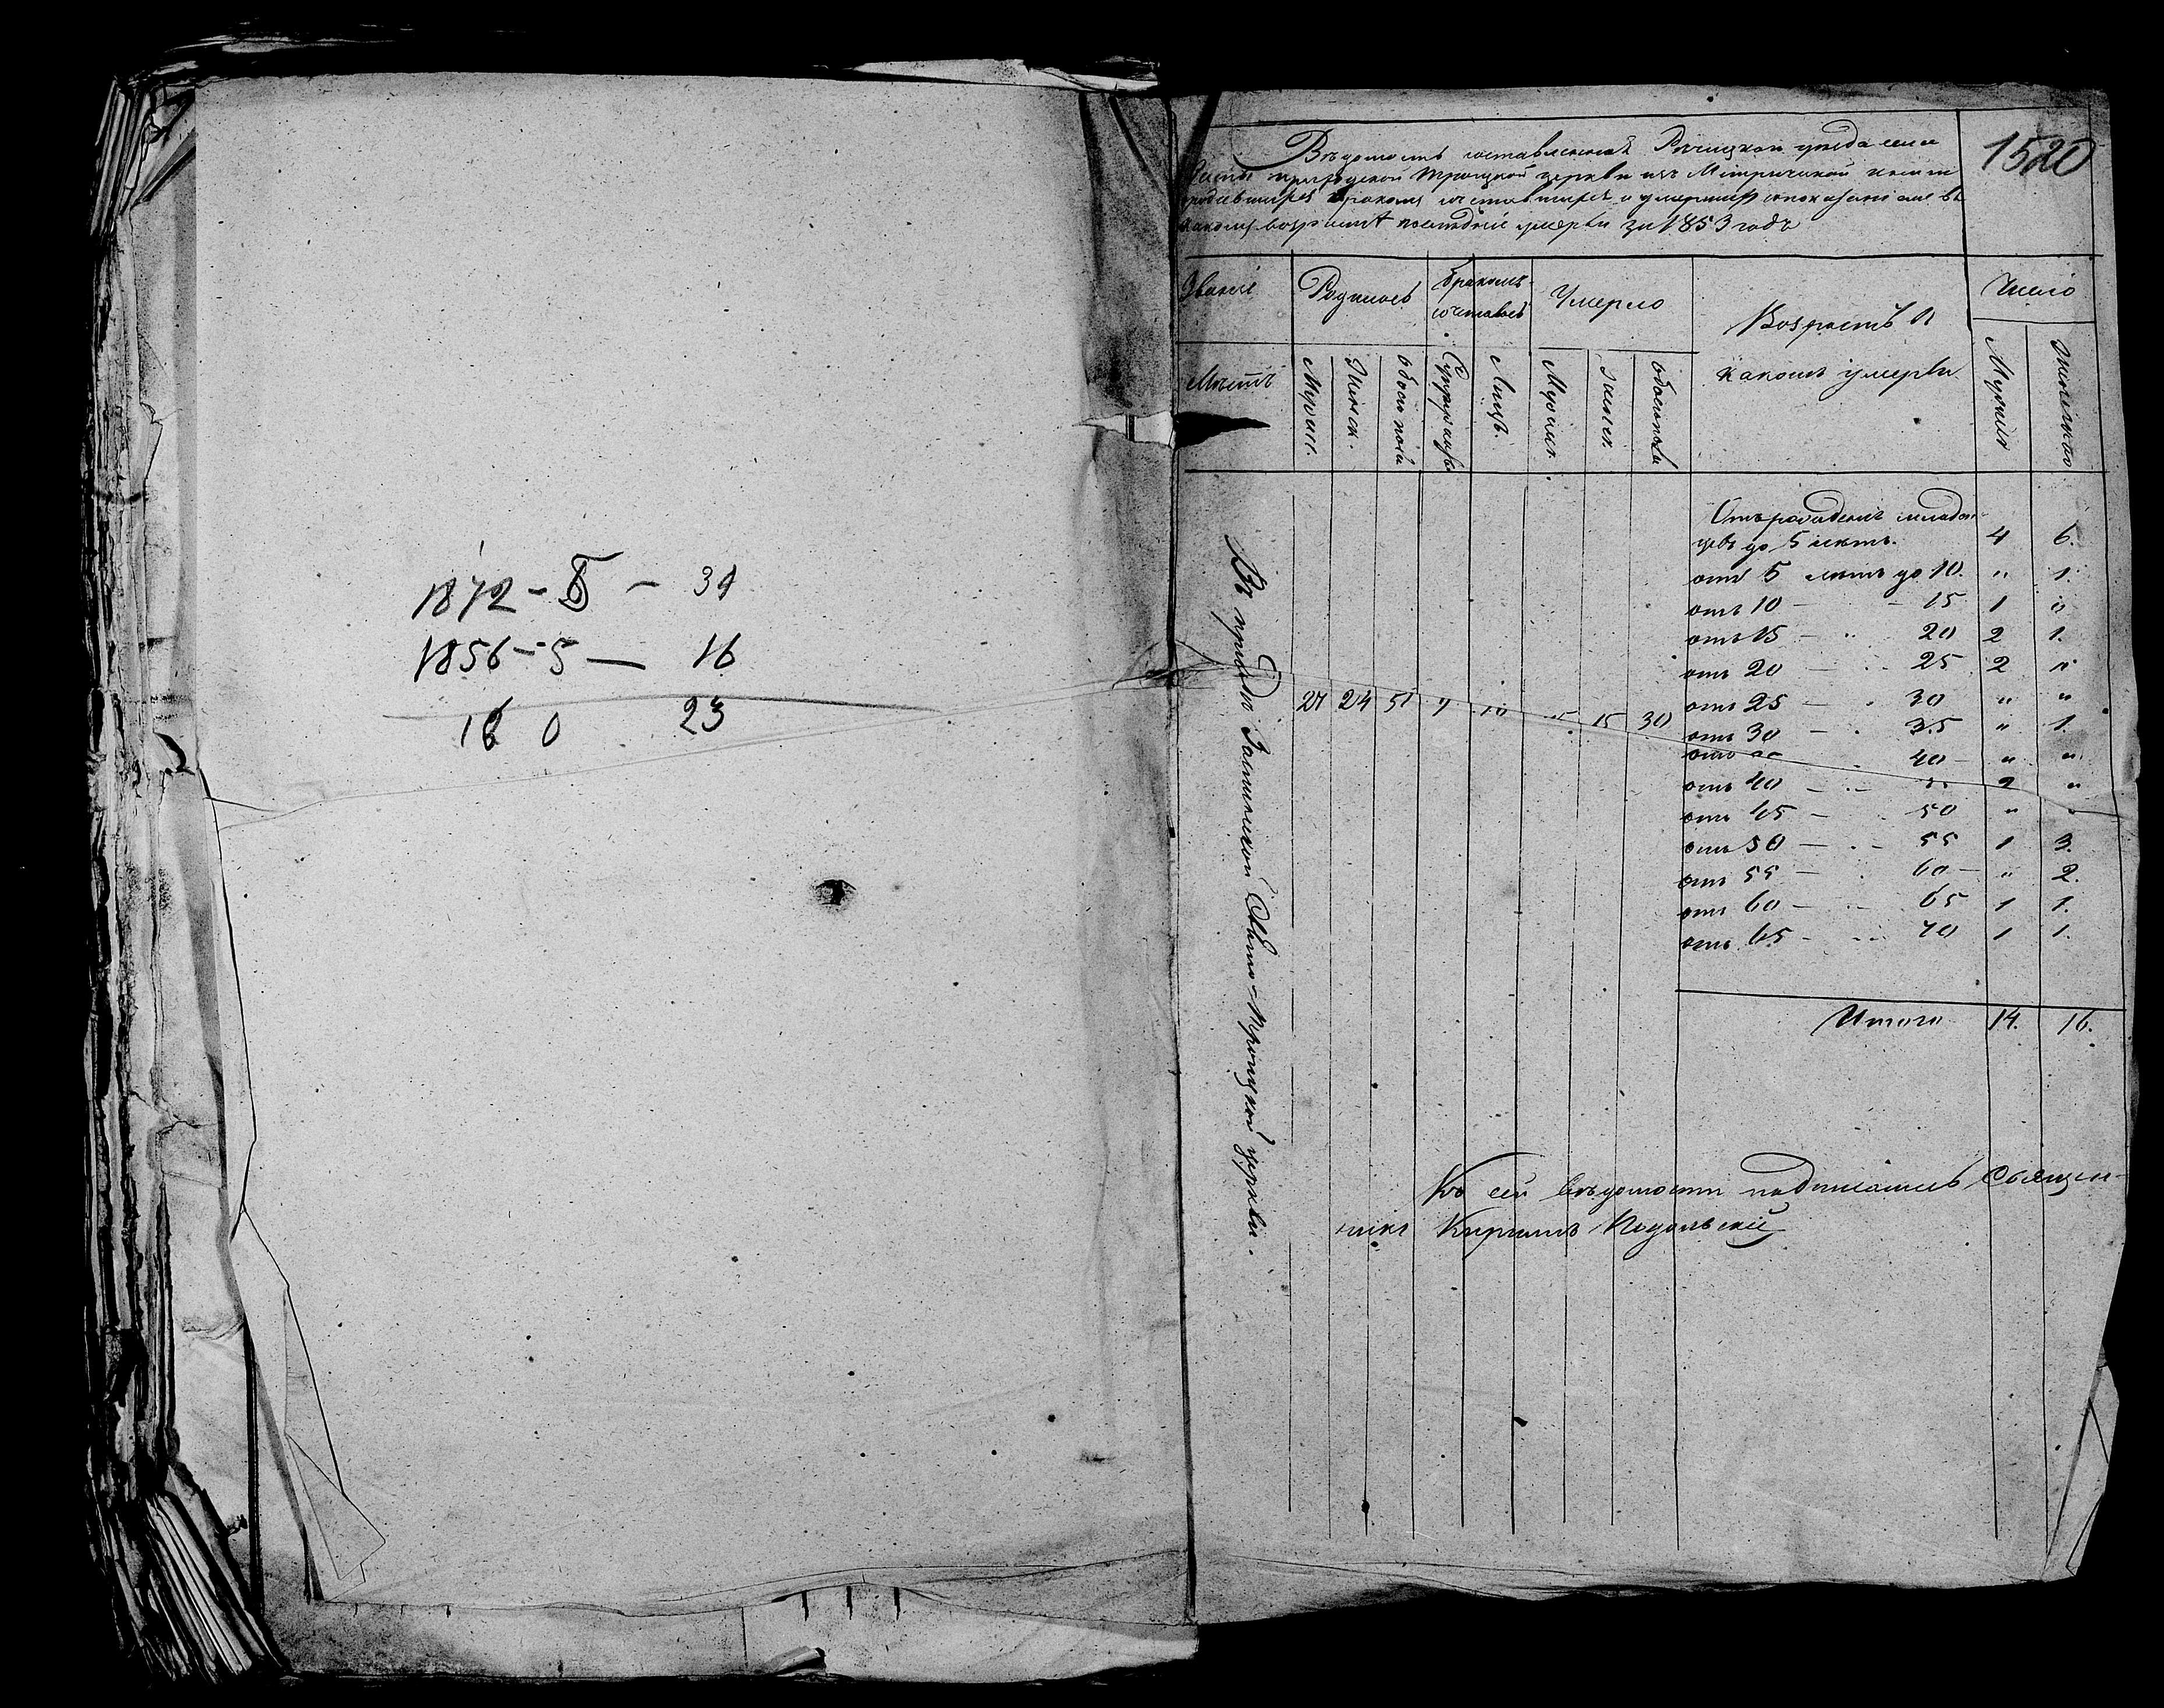 1872 - 5 - 31
1856 - 5 — 16
16 0 23
1520
Вѣдомость составленная Речицкаго уѣзда села
Троицкой церкви изъ Метрической книги
родившихся бракомъ сочетавшихся и умершихъ съ показаніемъ въ
какомъ возрастѣ послѣдніе умерли за 1853 годъ
Званіе
Мѣстъ
Родилось
Мужес.
Женск.
обоего пола
бракомъ
сочеталось
Супружествъ
Лицъ.
Умерло
Мужеск.
женск.
обоего пола
Возрастъ в
какомъ умерли
Число
Мужеск
Женского
Въ приходѣ Свято-Троицкой церкви.
27 24 51 15 30
Отъ рожденія младен-
цевъ до 5 лѣтъ. 4 6.
отъ 5 лѣтъ до 10. " 1.
отъ 10 — - 15 1 "
отъ 15 — " 20 2 1.
отъ 20 — " 25 2 "
отъ 25 — " 30 " "
отъ 30 — " 35 " 1.
отъ 40 " "
отъ 40 — 2 "
отъ 45 — 50 " "
отъ 50 — 55 1 3.
отъ 55 — 60 — " 2.
отъ 60 — 65 1 1.
отъ 65 - 70 1 1.
Итого 14. 16.
Къ сей вѣдомости подписался Священ-
никъ Кириллъ Подольскій